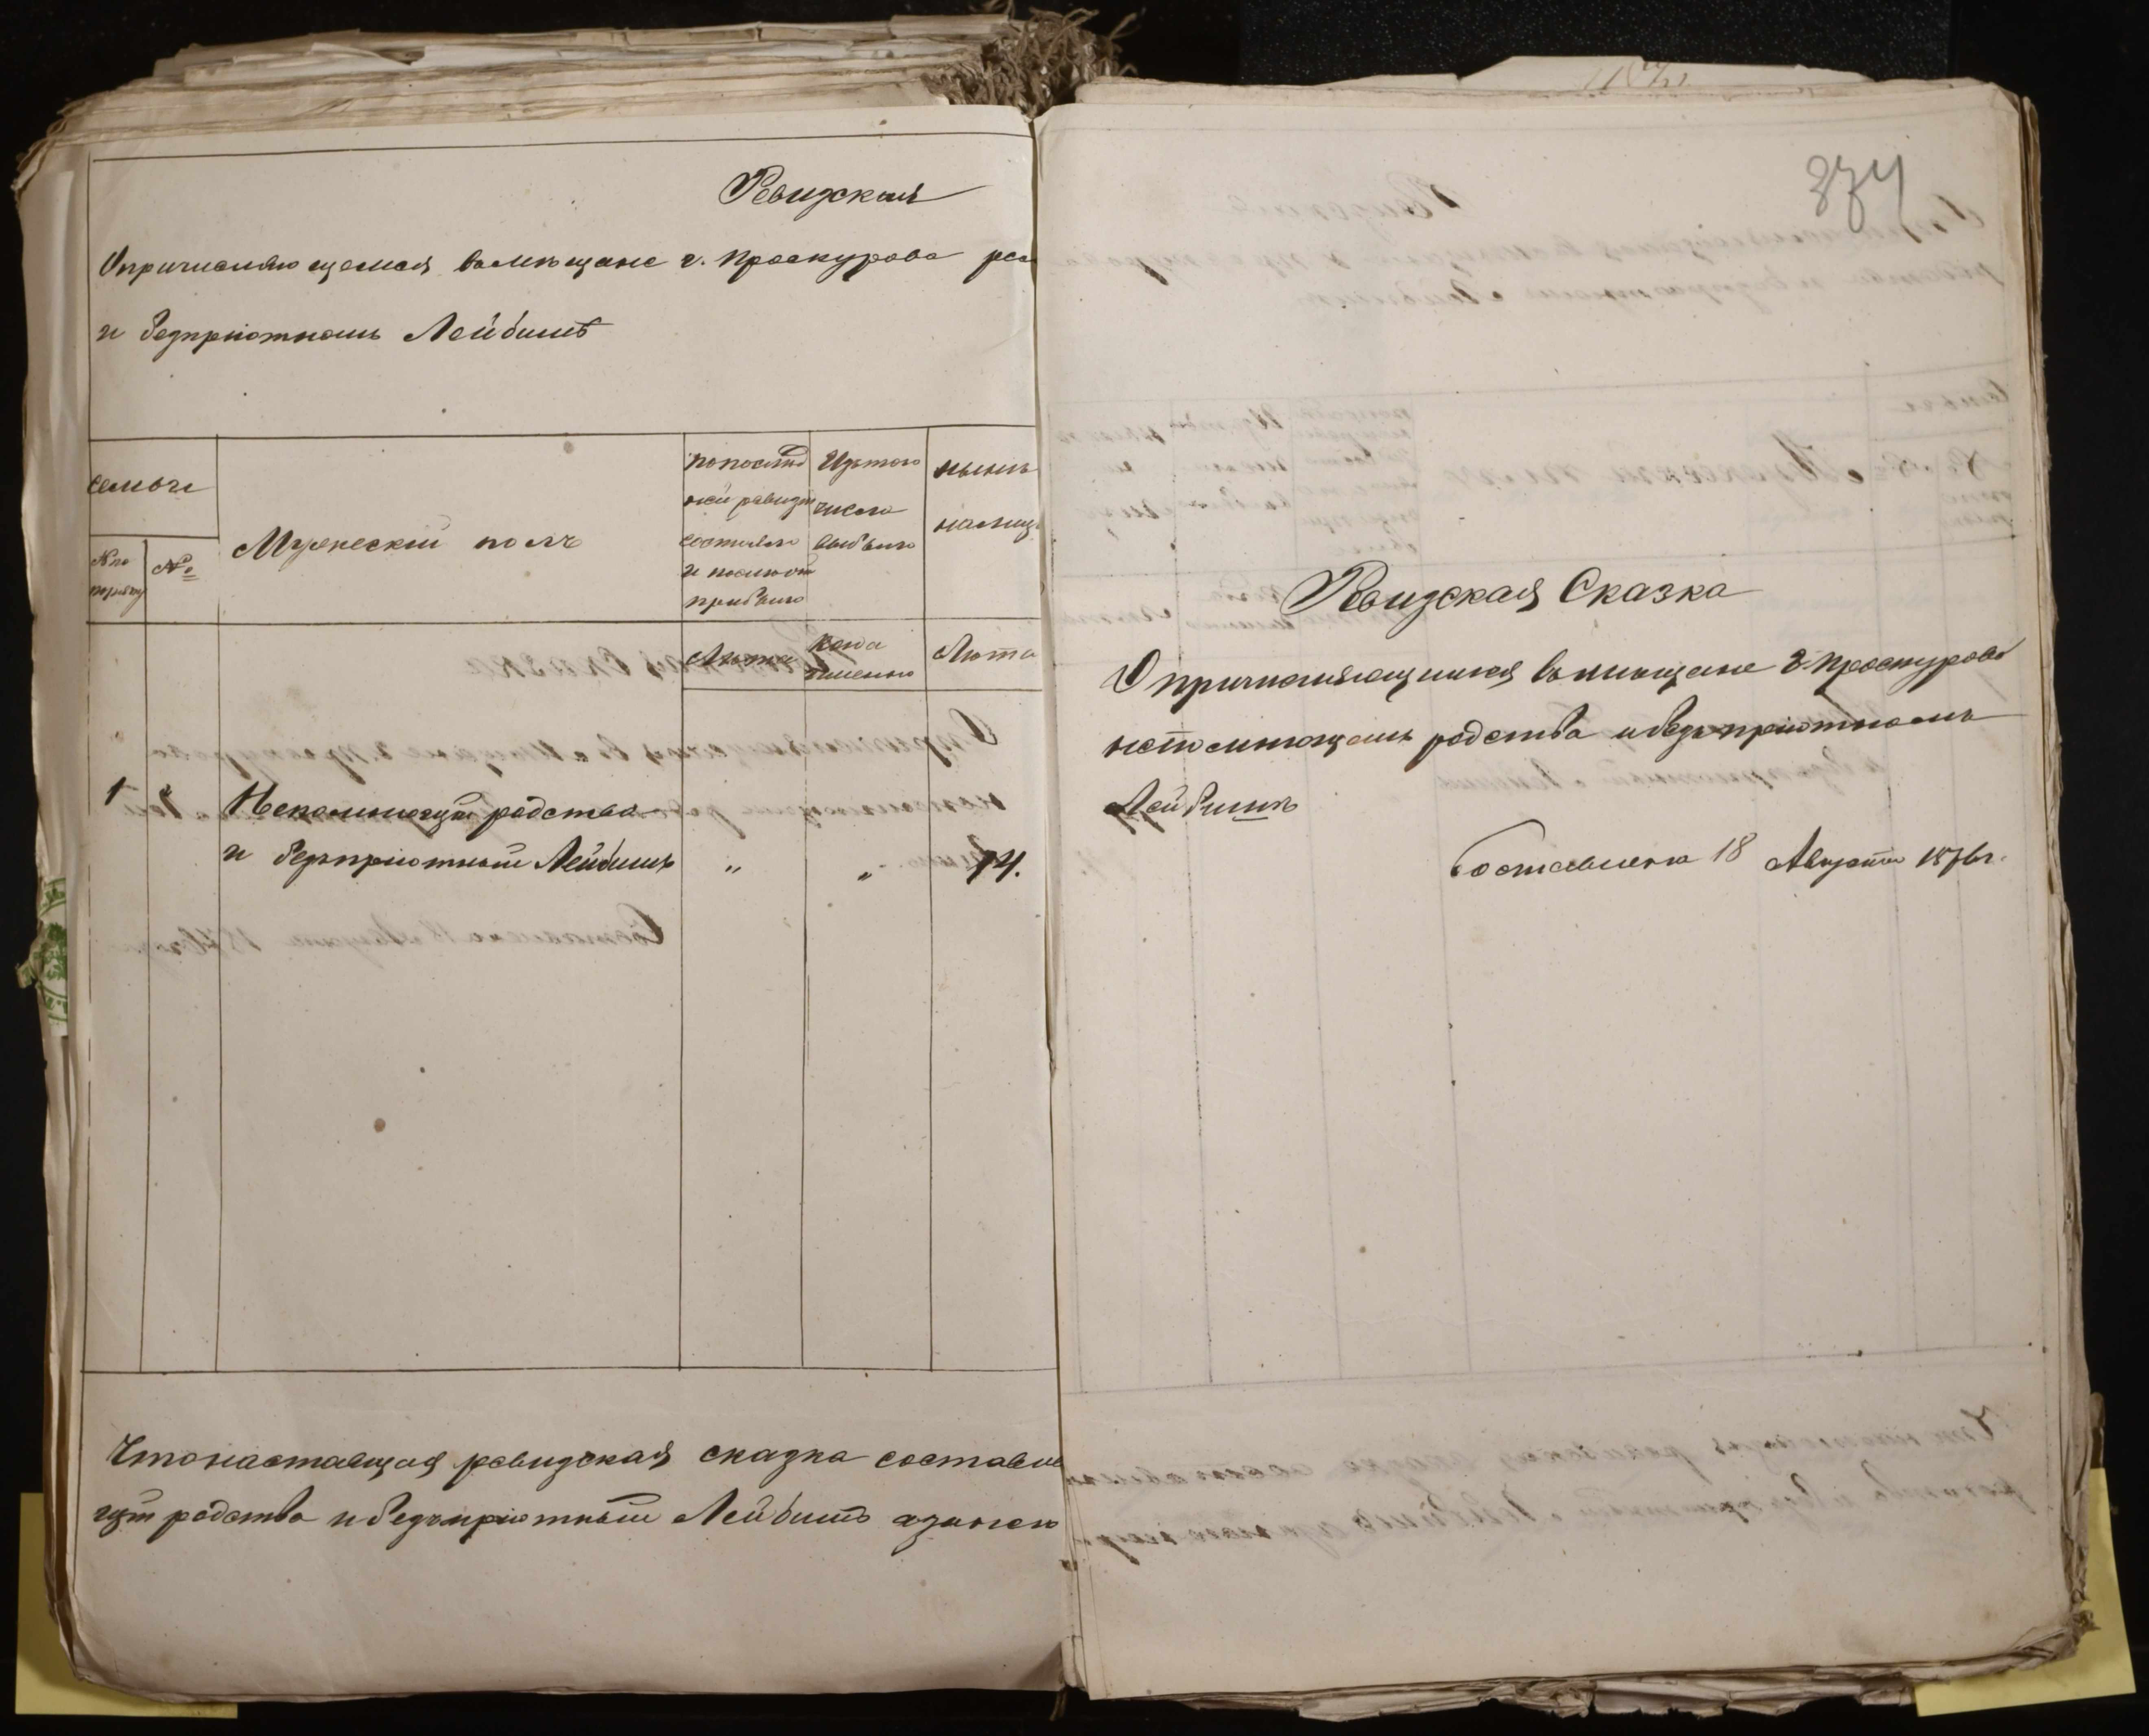 Ревизская
О причисляющемся въ мѣщане г. Проскурова
и безпріютномъ Лейбишѣ
семьи
№ по порядку
№
Мужескій полъ
по послѣд
ней ревизіи
состояло
и послѣ того
прибыло
Изъ того
числа
выбыло
нынѣ
на лицо
Лѣта
когда
именно
Лѣта
1
Непомнящій родства
и безпріютный Лейбишъ
"
"
14.
Что настоящая ревизская сказка составле
щій родства и безъпріютный Лейбишъ
334
Ревизская Сказка
О причисляющимся въ мѣщане г. Проскурова
непомнящемъ родства и безъпріютномъ
Лейбишѣ
Составлена 18 Августа 1876 г.